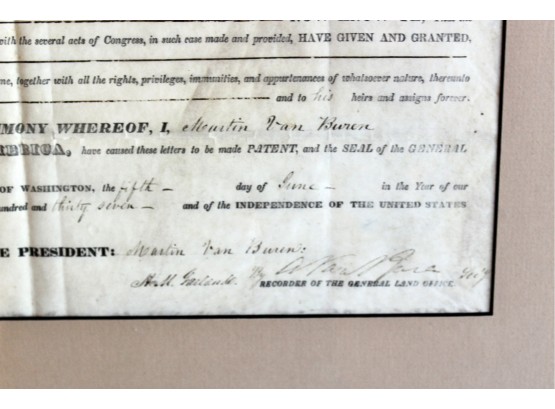 with the several acts of Congress, in such case made and provided, HAVE GIVEN AND GRANTED,
me, together with all the rights, privileges, immunities, and appurtenances of whatsoever nature, thereunto
and to his heirs and assigns forever.
MONY WHEREOF, I, Martin Van Buren
ERICA, have caused these letters to be made PATENT, and the SEAL of the GENERAL
OF WASHINGTON, the fifth day of June in the Year of our
undred and thirty seven and of the INDEPENDENCE OF THE UNITED STATES
E PRESIDENT: Martin Van Buren.
By A Van Buren Sec'y
RECORDER OF THE GENERAL LAND OFFICE